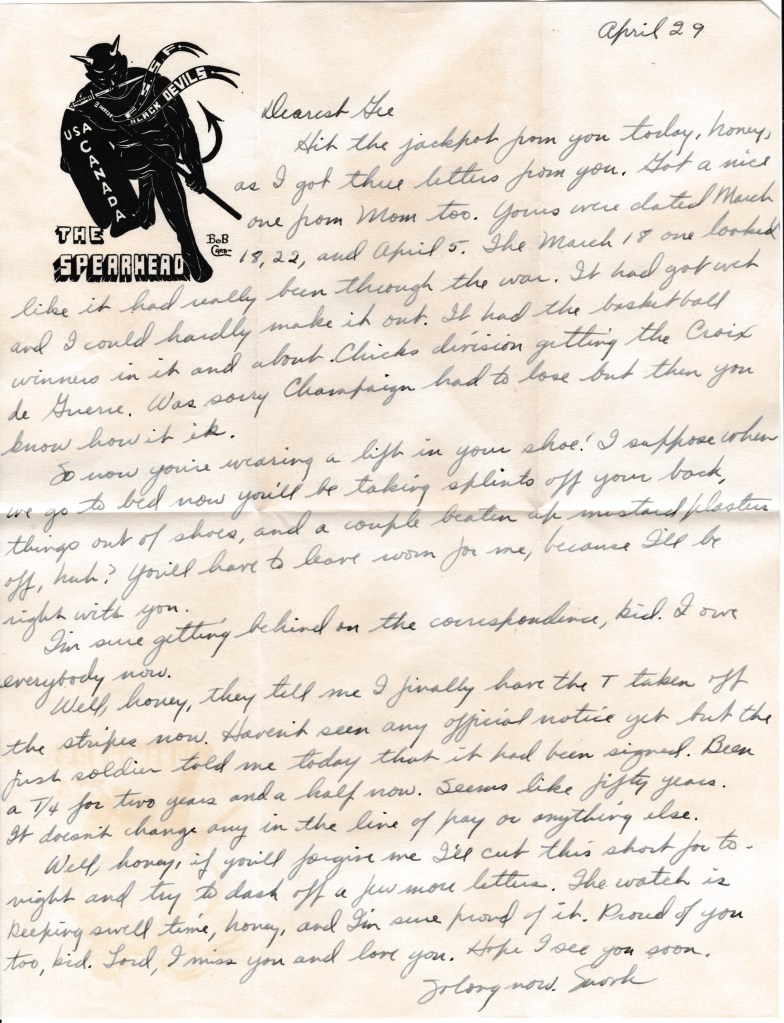 April 29
FSSF
BLACK DEVILS
USA
CANADA
THE
SPEARHEAD
BoB
Dearest Gee
Hit the jackpot from you today, honey,
as I got three letters from you. Got a nice
one from Mom too. Yours were dated March
18, 22, and April 5. The March 18 one looked
like it had really been through the war. It had got wet
and I could hardly make it out. It had the basketball
winners in it and about Chicks division getting the Croix
de Guerre. Was sorry Champaign had to lose but then you
know how it is.
So now you're wearing a lift in your shoe! I suppose when
we go to bed now you'll be taking splints off your back,
things out of shoes, and a couple beaten up mustard plasters
off, huh? You'll have to leave room for me, because I'll be
right with you.
I'm sure getting behind on the correspondence, kid. I owe
everybody now.
Well, honey, they tell me I finally have the T taken off
the stripes now. Haven't seen any official notice yet but the
just soldier told me today that it had been signed. Been
a T/4 for two years and a half now. Seems like fifty years.
It doesn't change any in the line of pay or anything else.
Well, honey, if you'll forgive me I'll cut this short for to-
night and try to dash off a few more letters. The watch is
keeping swell time, honey, and I'm sure proud of it. Proud of you
too, kid. Lord, I miss you and love you. Hope I see you soon.
So long now.